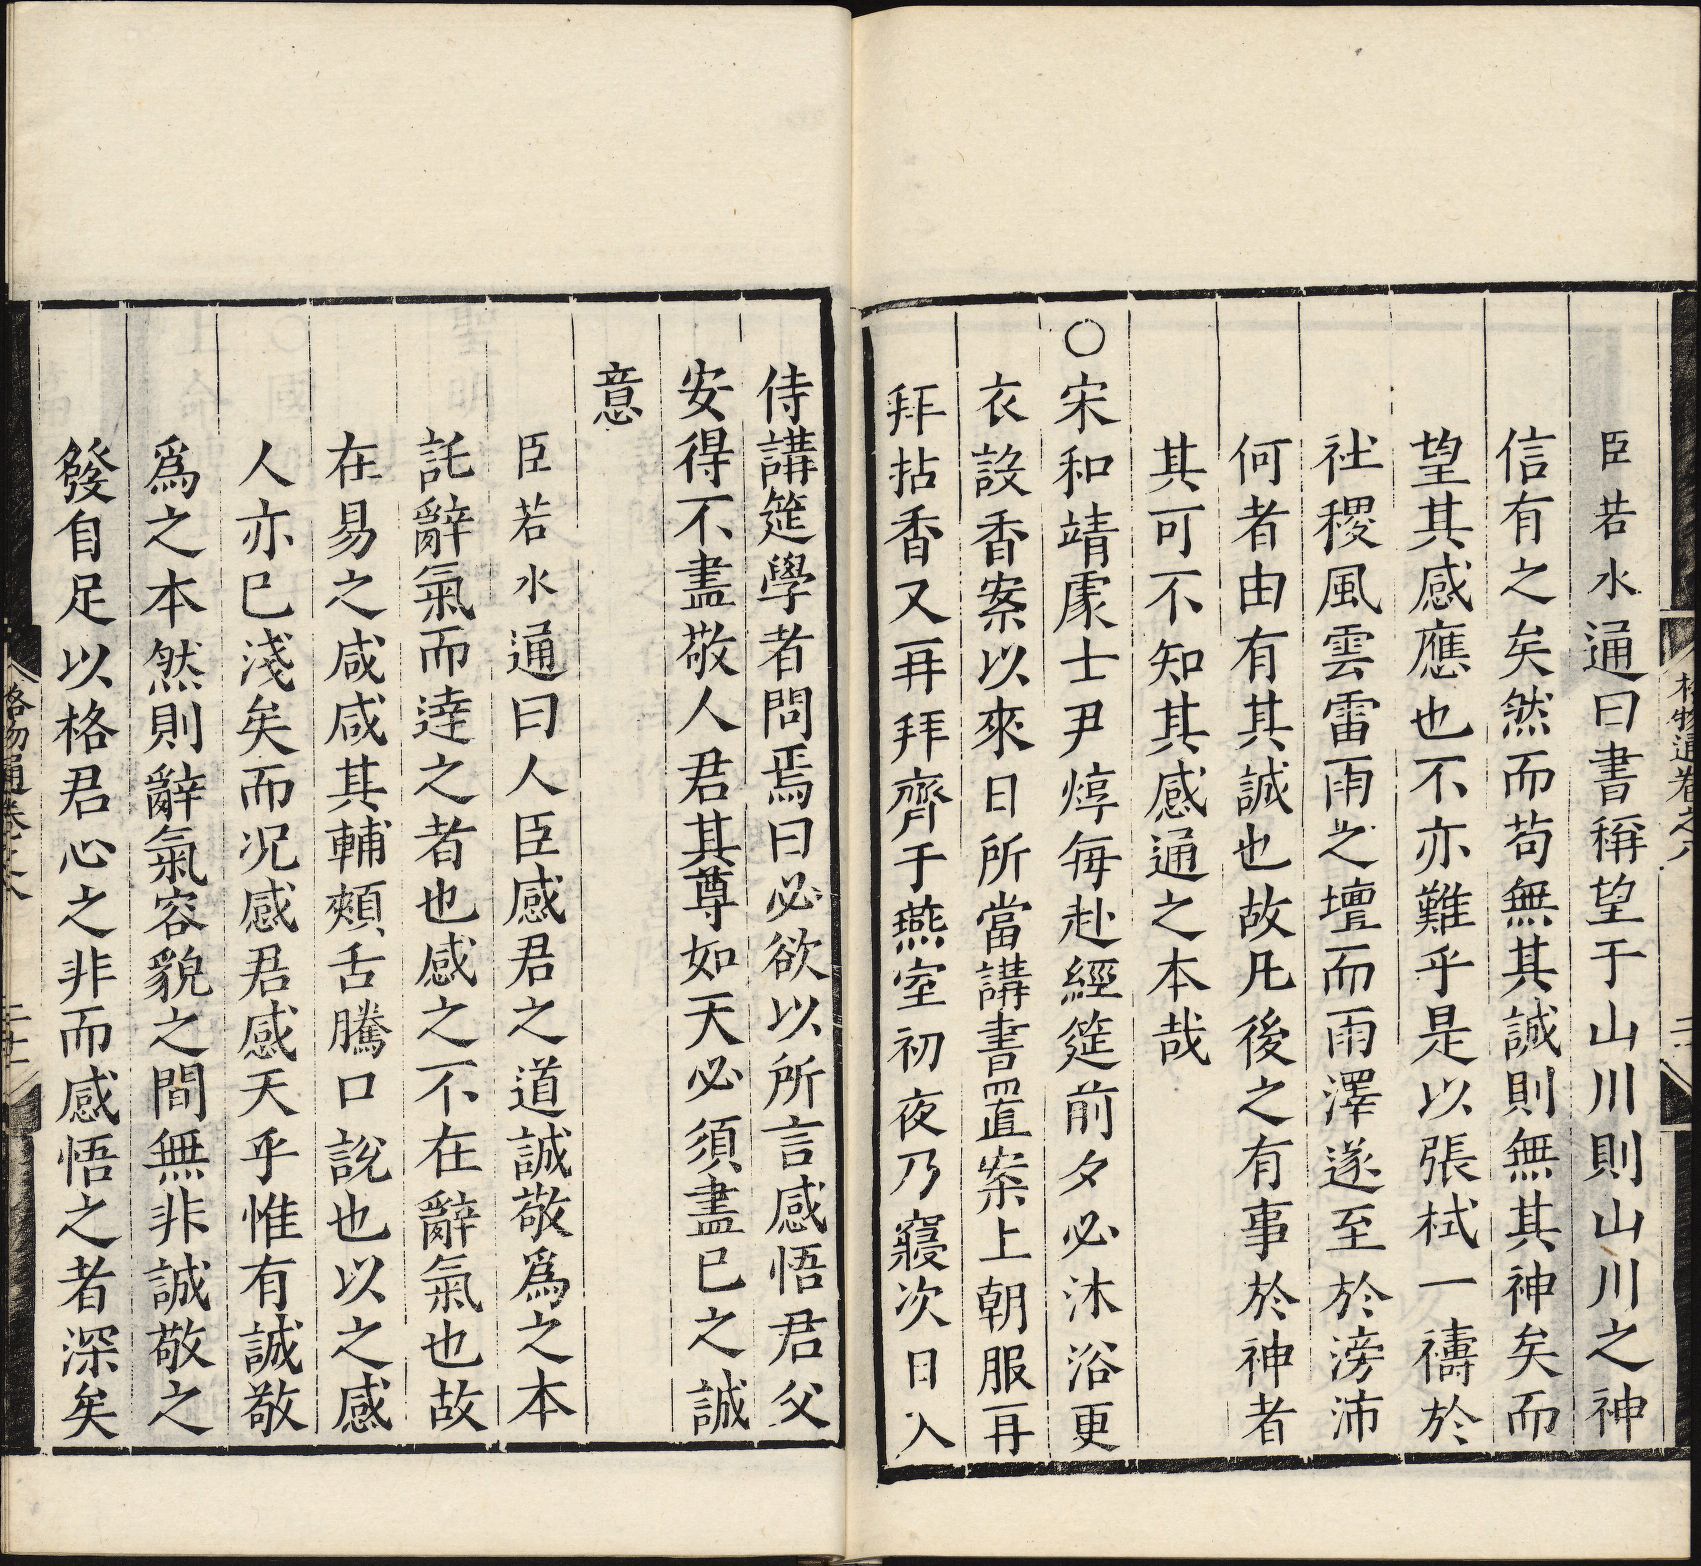 臣若水通曰書稱望于山川則山川之神
信有之矣然而苟無其誠則無其神矣而
望其感應也不亦難乎是以張栻一禱於
社稷風雲雷雨之壇而雨澤遂至於滂沛
何者由有其誠也故凡後之有事於神者
其可不知其感通之本哉
○宋和靖處士尹焞每赴經筵前夕必沐浴更
衣設香案以來日所當講書置案上朝服再
拜拈香又再拜齊于燕室初夜乃寢次日入
侍講筵學者問焉曰必欲以所言感悟君父
安得不盡敬人君其尊如天必須盡已之誠
意
臣若水通曰人臣感君之道誠敬為之本
託辭氣而達之者也感之不在辭氣也故
在易之咸咸其輔頰舌騰口說也以之感
人亦已淺矣而況感君感天乎惟有誠敬
為之本然則辭氣容貌之間無非誠敬之
發自足以格君心之非而感悟之者深矣
格物通卷之八